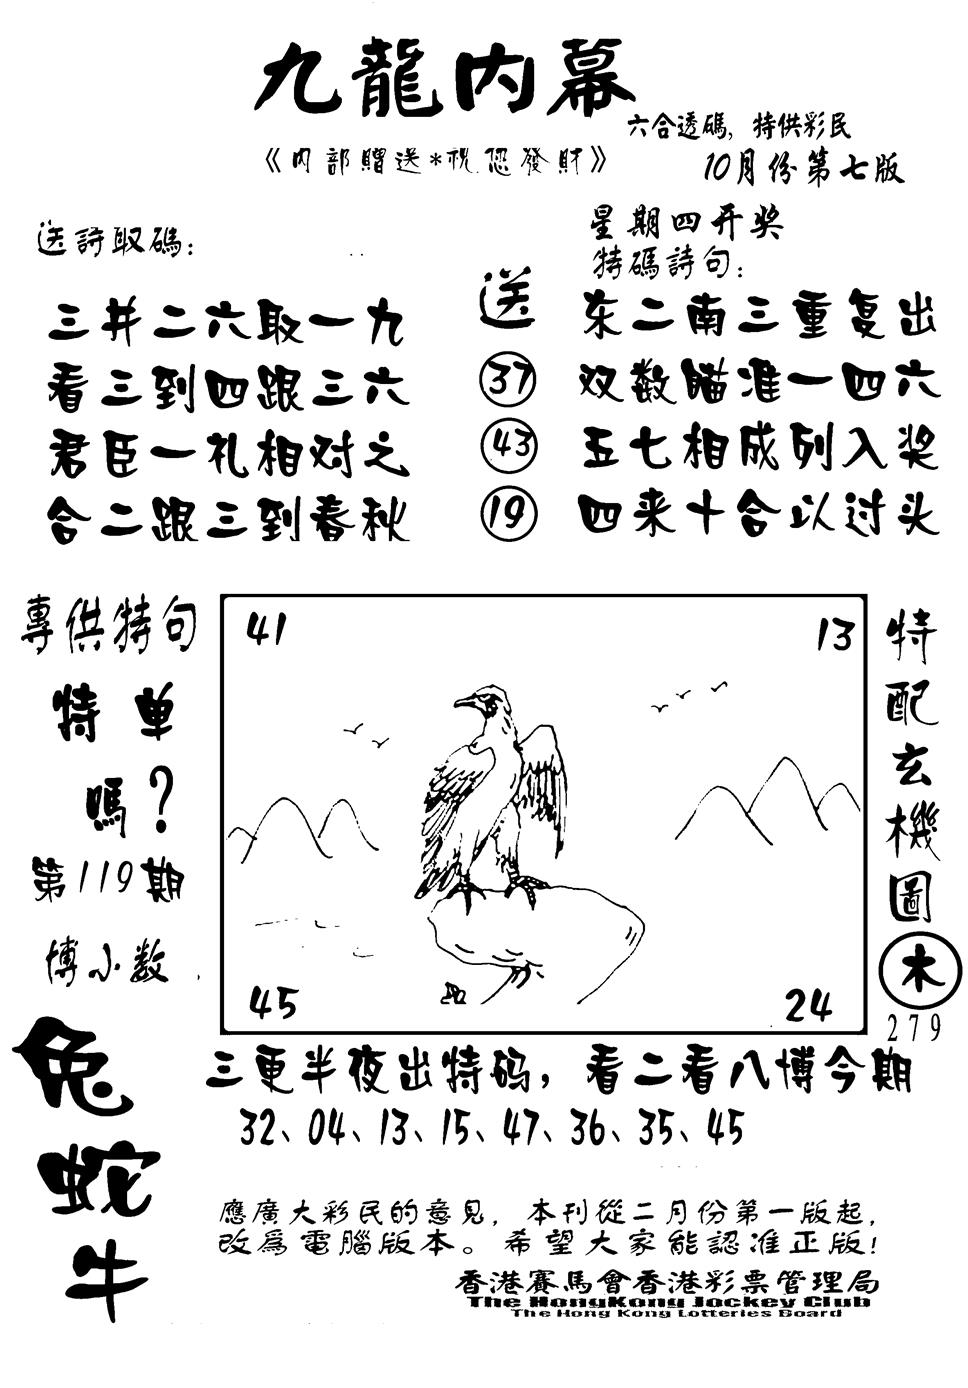 九龍内幕
六合透碼, 特供彩民
《内部贈送*祝您發財》
10月份第七版
送詩取碼:
星期四开奖
特碼詩句:
三并二六取一九
看三到四跟三六
君臣一礼相对之
合二跟三到春秋
送
37
43
19
东二南三重复出
双数瞄准一四六
五七相成列入奖
四来十合以过头
專供特句
特单
嗎?
第119期
博小数
兔
蛇
牛
41
13
45
24
特配玄機圖
木
279
三更半夜出特码, 看二看八博今期
32、04、13、15、47、36、35、45
應廣大彩民的意見, 本刊從二月份第一版起,
改爲電腦版本。希望大家能認准正版!
香港賽馬會香港彩票管理局
The HongKong Jockey Club
The Hong Kong Lotteries Board